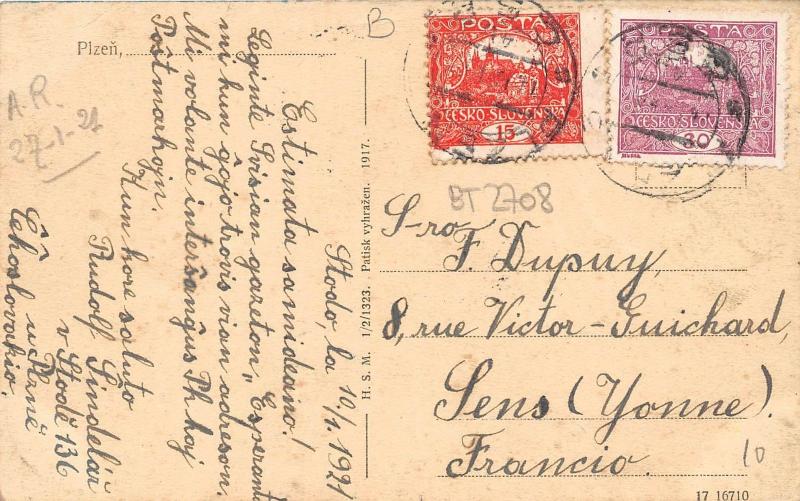 Plzeň,
B
A.R.
27-1-21
Stodo, la 10/1 1921
Estimata samideano!
Leginte Svisian gazeton „Esperanto"
mi kun ĝojo trovis vian adreson.
Mi volonte interŝanĝus Pk kaj
Poŝtmarkojn.
Kun kore saluto
Rudolf Šindelář
v Stodě 136
u Plzně
Ĉeĥoslovakio.
H. S. M. 1/2/1323. Patisk vyhražen. 1917.
POSTA
ČESKO-SLOVENSKÁ
15
POSTA
ČESKO-SLOVENSKÁ
30
MUCHA
BT 2708
S-ro
F. Dupuy,
8, rue Victor-Guichard,
Sens (Yonne).
Francio.
10
17 16710